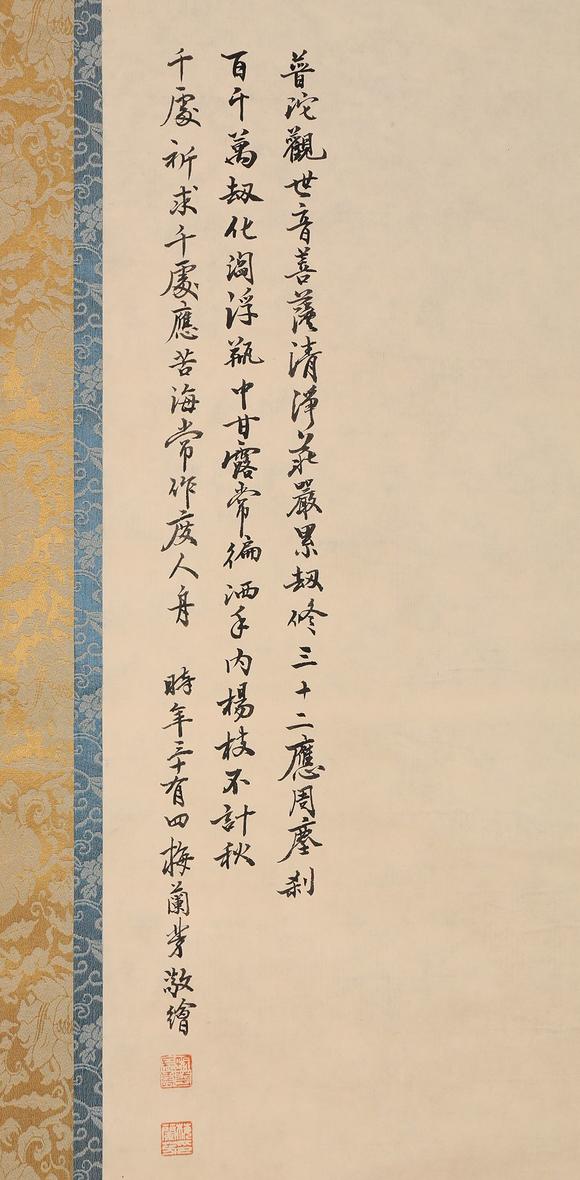 普陀觀世音菩薩清淨莊嚴累劫修三十二應周塵刹
百千萬劫化閻浮瓶中甘露常徧洒手內楊枝不計秋
千處祈求千處應苦海常作度人舟 時年三十有四梅蘭芳敬繪